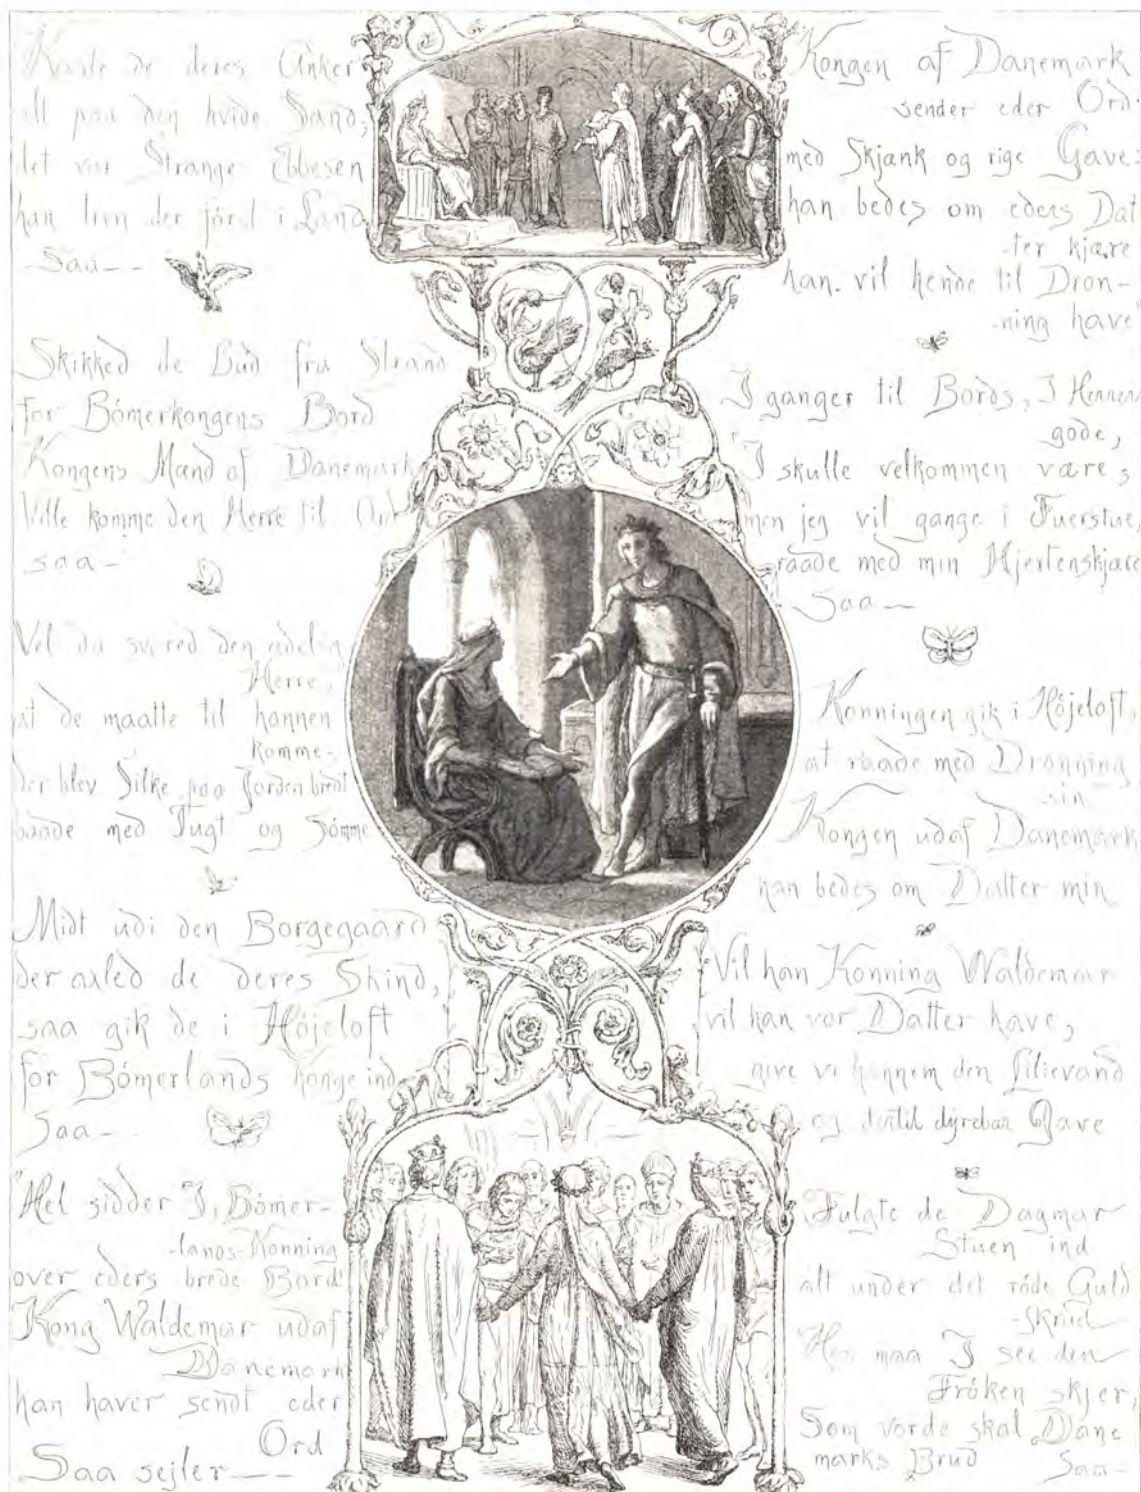 Kaste de deres Anker
alt paa den hvide Sand,
det var Strange Ebbesen
han tren der först i Land
-Saa--
Skikked de Bud fra Strand
for Bömerkongens Bord
Kongens Mænd af Danemark
Ville komme den Herre til Ord
saa-
Vel da svared den adelig
Herre,
at de maatte til hannem
komme-
der blev Silke paa Jorden bredt
baade med Tugt og Sömme
Midt udi den Borgegaard
der axled de deres Skind,
saa gik de i Höjeloft
for Bömerlands Konge ind
Saa-
"Hel sidder I, Bömer-
-lands-Konning
over eders brede Bord
Kong Waldemar udaf
Danemark
han haver sendt eder
Ord
Saa sejler--
Kongen af Danemark
sender eder Ord
med Skjænk og rige Gave:
han bedes om eders Dat
-ter kjære
han vil hende til Dron-
-ning have
I ganger til Bords, I Herrer
gode,
I skulle velkommen være,
men jeg vil gange i Fuerstue
raade med min Hjertenskjære
Saa-
Konningen gik i Höjeloft,
at raade med Dronning
sin
Kongen udaf Danemark
han bedes om Datter min
Vil han Konning Waldemar
vil han vor Datter have,
give vi hannem den Lilievand
og dertil dyrebar Gave
Fulgte de Dagmar
Stuen ind
alt under det röde Guld
-skrud
Her maa I see den
Fröken skjer,
Som vorde skal Dane
marks Brud
Saa-